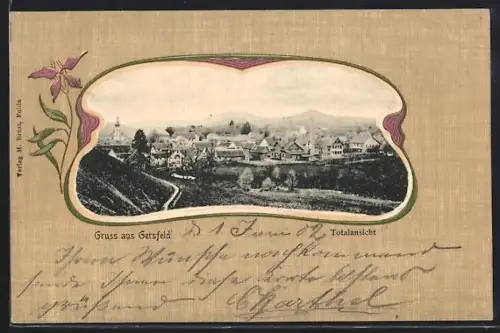 Verlag M. Brust, Fulda
Gruss aus Gersfeld
Totalansicht
d 1 Juni 02
Ihrem Wunsche nachkommend
sende Ihnen diese erste Karte
grüßend